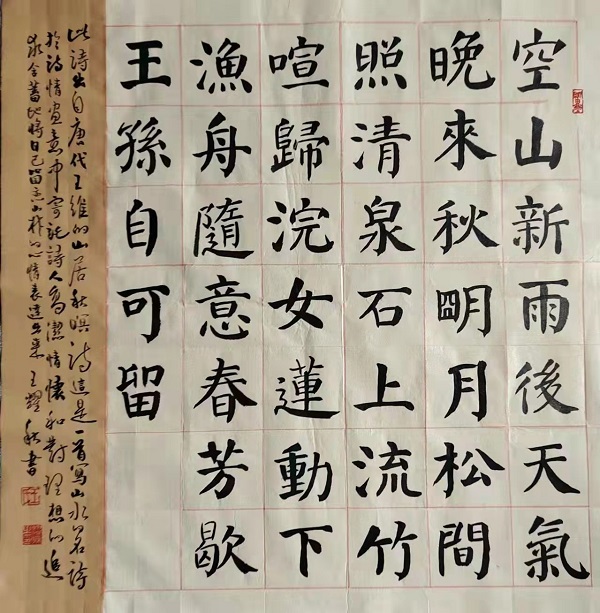 空山新雨後天氣
晚來秋朙月松間
照清泉石上流竹
喧歸浣女蓮動下
漁舟隨意春芳歇
王孫自可留
此詩出自唐代王維的山居秋暝詩這是一首寫山水名詩
於詩情畫意中寄託詩人高潔情懷和對理想的追
求含蓄地將自己留恋山林的心情表達出來 王耀秋書